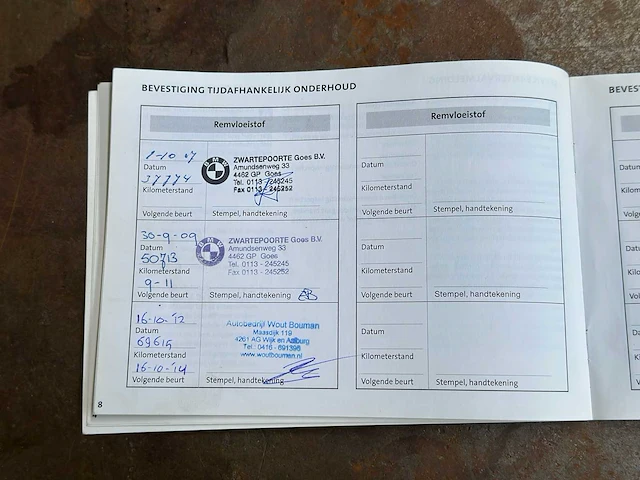 BEVESTIGING TIJDAFHANKELIJK ONDERHOUD
Remvloeistof
1-10 07
Datum
37774
Kilometerstand
Volgende beurt
BMW
ZWARTEPOORTE Goes B.V.
Amundsenweg 33
4462 GP Goes
Tel. 0113 - 245245
Fax 0113 - 245252
Stempel, handtekening
30-9-09
Datum
50713
Kilometerstand
9-11
Volgende beurt
BMW
ZWARTEPOORTE Goes B.V.
Amundsenweg 33
4462 GP Goes
Tel. 0113 - 245245
Fax 0113 - 245252
Stempel, handtekening
16-10-'12
Datum
69619
Kilometerstand
16-10-'14
Volgende beurt
Autobedrijf Wout Bouman
Maasdijk 119
4261 AG Wijk en Aalburg
Tel.: 0416 - 691396
www.woutbouman.nl
Stempel, handtekening
8
Remvloeistof
Datum
Kilometerstand
Volgende beurt
Stempel, handtekening
Datum
Kilometerstand
Volgende beurt
Stempel, handtekening
Datum
Kilometerstand
Volgende beurt
Stempel, handtekening
BEVES